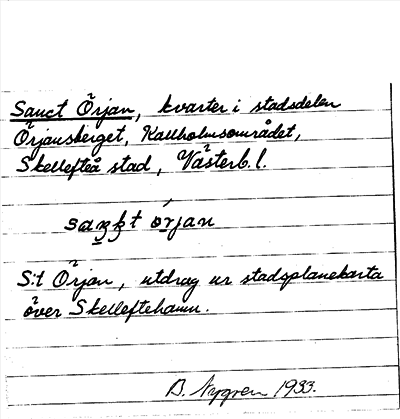 Sanct Örjan, kvarter i stadsdelen
Örjansberget, Kallholmsområdet,
Skellefteå stad, Västerb. l.
saŋkt örjan
S:t Örjan, utdrag ur stadsplanekarta
över Skelleftehamn.
B. Nygren 1933.